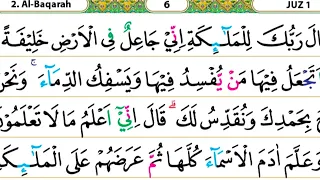 2. Al-Baqarah 6 JUZ 1
الَ رَبُّكَ لِلْمَلٰٓئِكَةِ اِنِّيْ جَاعِلٌ فِى الْاَرْضِ خَلِيْفَةً
تَجْعَلُ فِيْهَا مَنْ يُّفْسِدُ فِيْهَا وَيَسْفِكُ الدِّمَآءَ ۚ وَنَحْنُ
حُ بِحَمْدِكَ وَنُقَدِّسُ لَكَ ۗ قَالَ اِنِّيْٓ اَعْلَمُ مَا لَا تَعْلَمُوْنَ
وَعَلَّمَ اٰدَمَ الْاَسْمَآءَ كُلَّهَا ثُمَّ عَرَضَهُمْ عَلَى الْمَلٰٓئِكَةِ